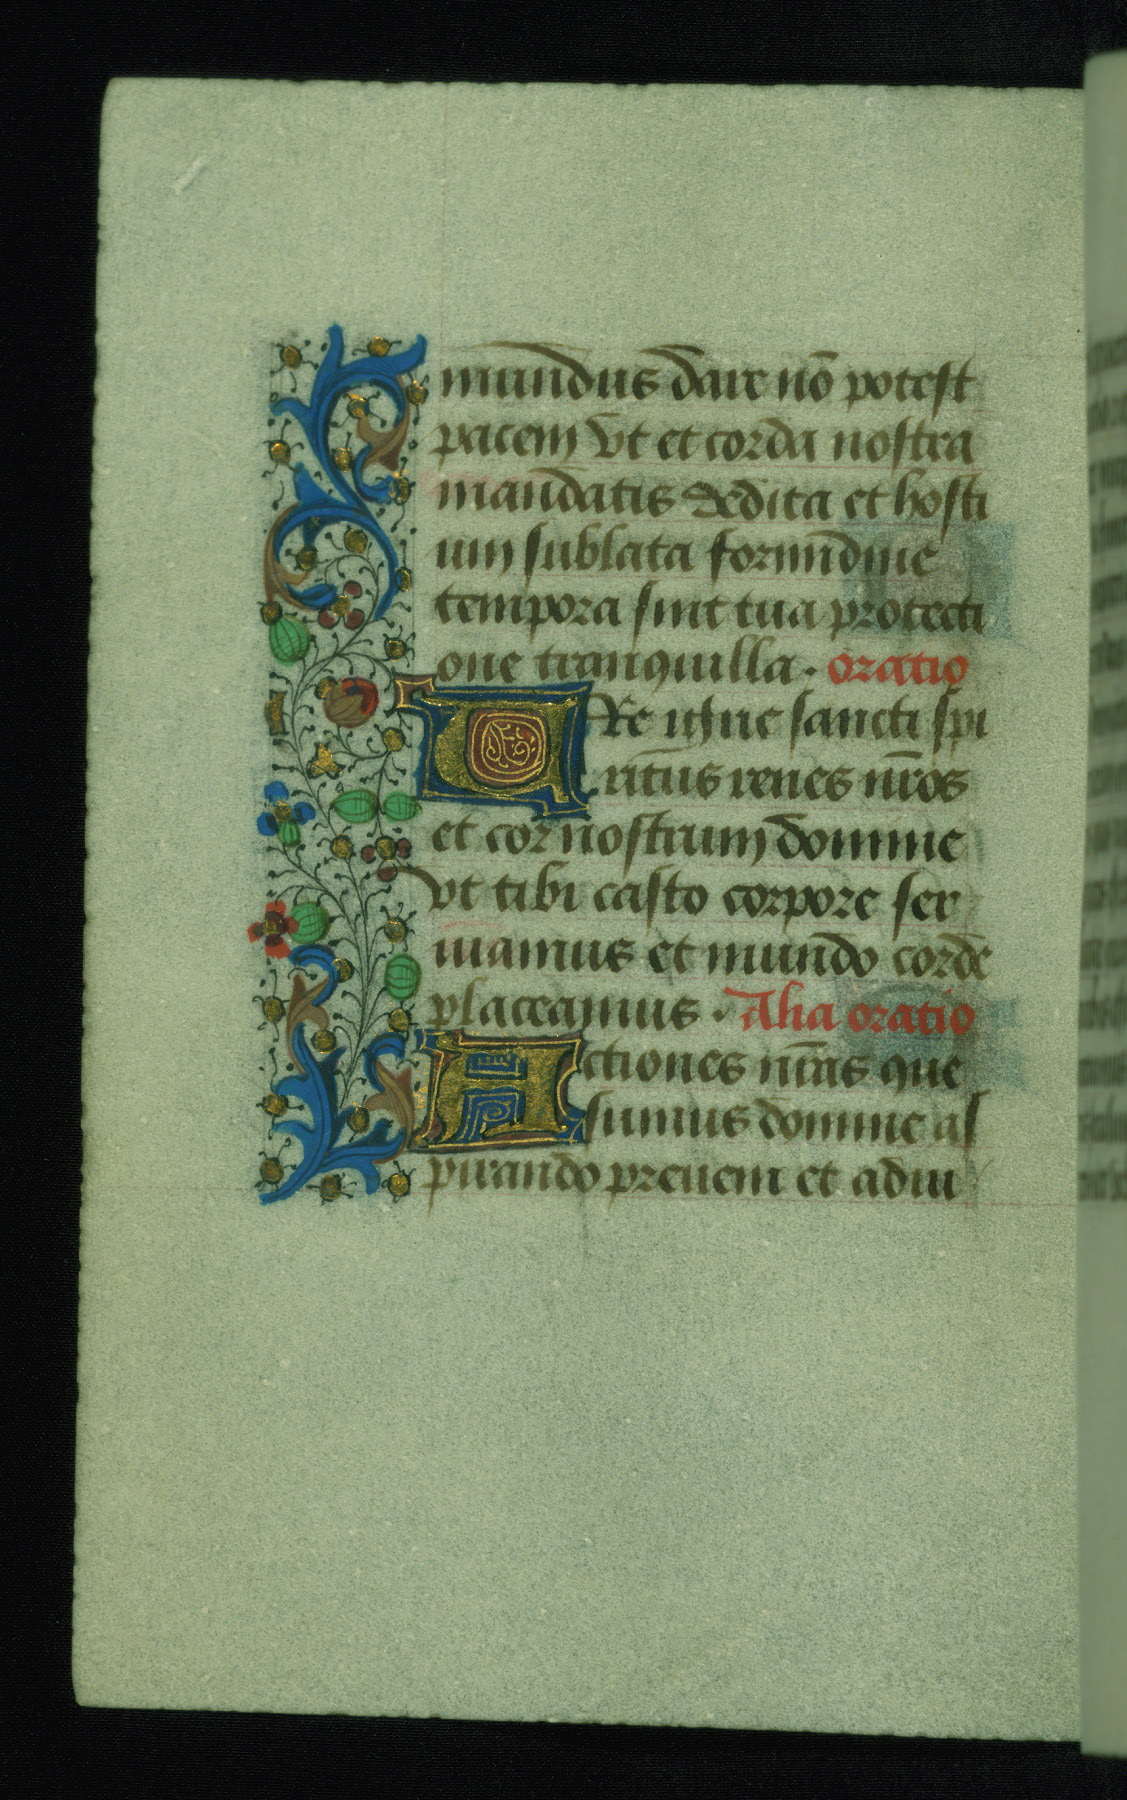 mundus dare nō potest
pacem Vt et corda nostra
mandatis dedita et hosti
um sublata formidine
tempora sint tua protecti
one tranquilla. oratio
VRe igne sancti spi
ritus renes nr̄os
et cor nostrum domine
vt tibi casto corpore ser
uiamus et mundo corde
placeamus. Alia oratio
Actiones nr̄as que
sumus domine as
pirando preueni et adiu